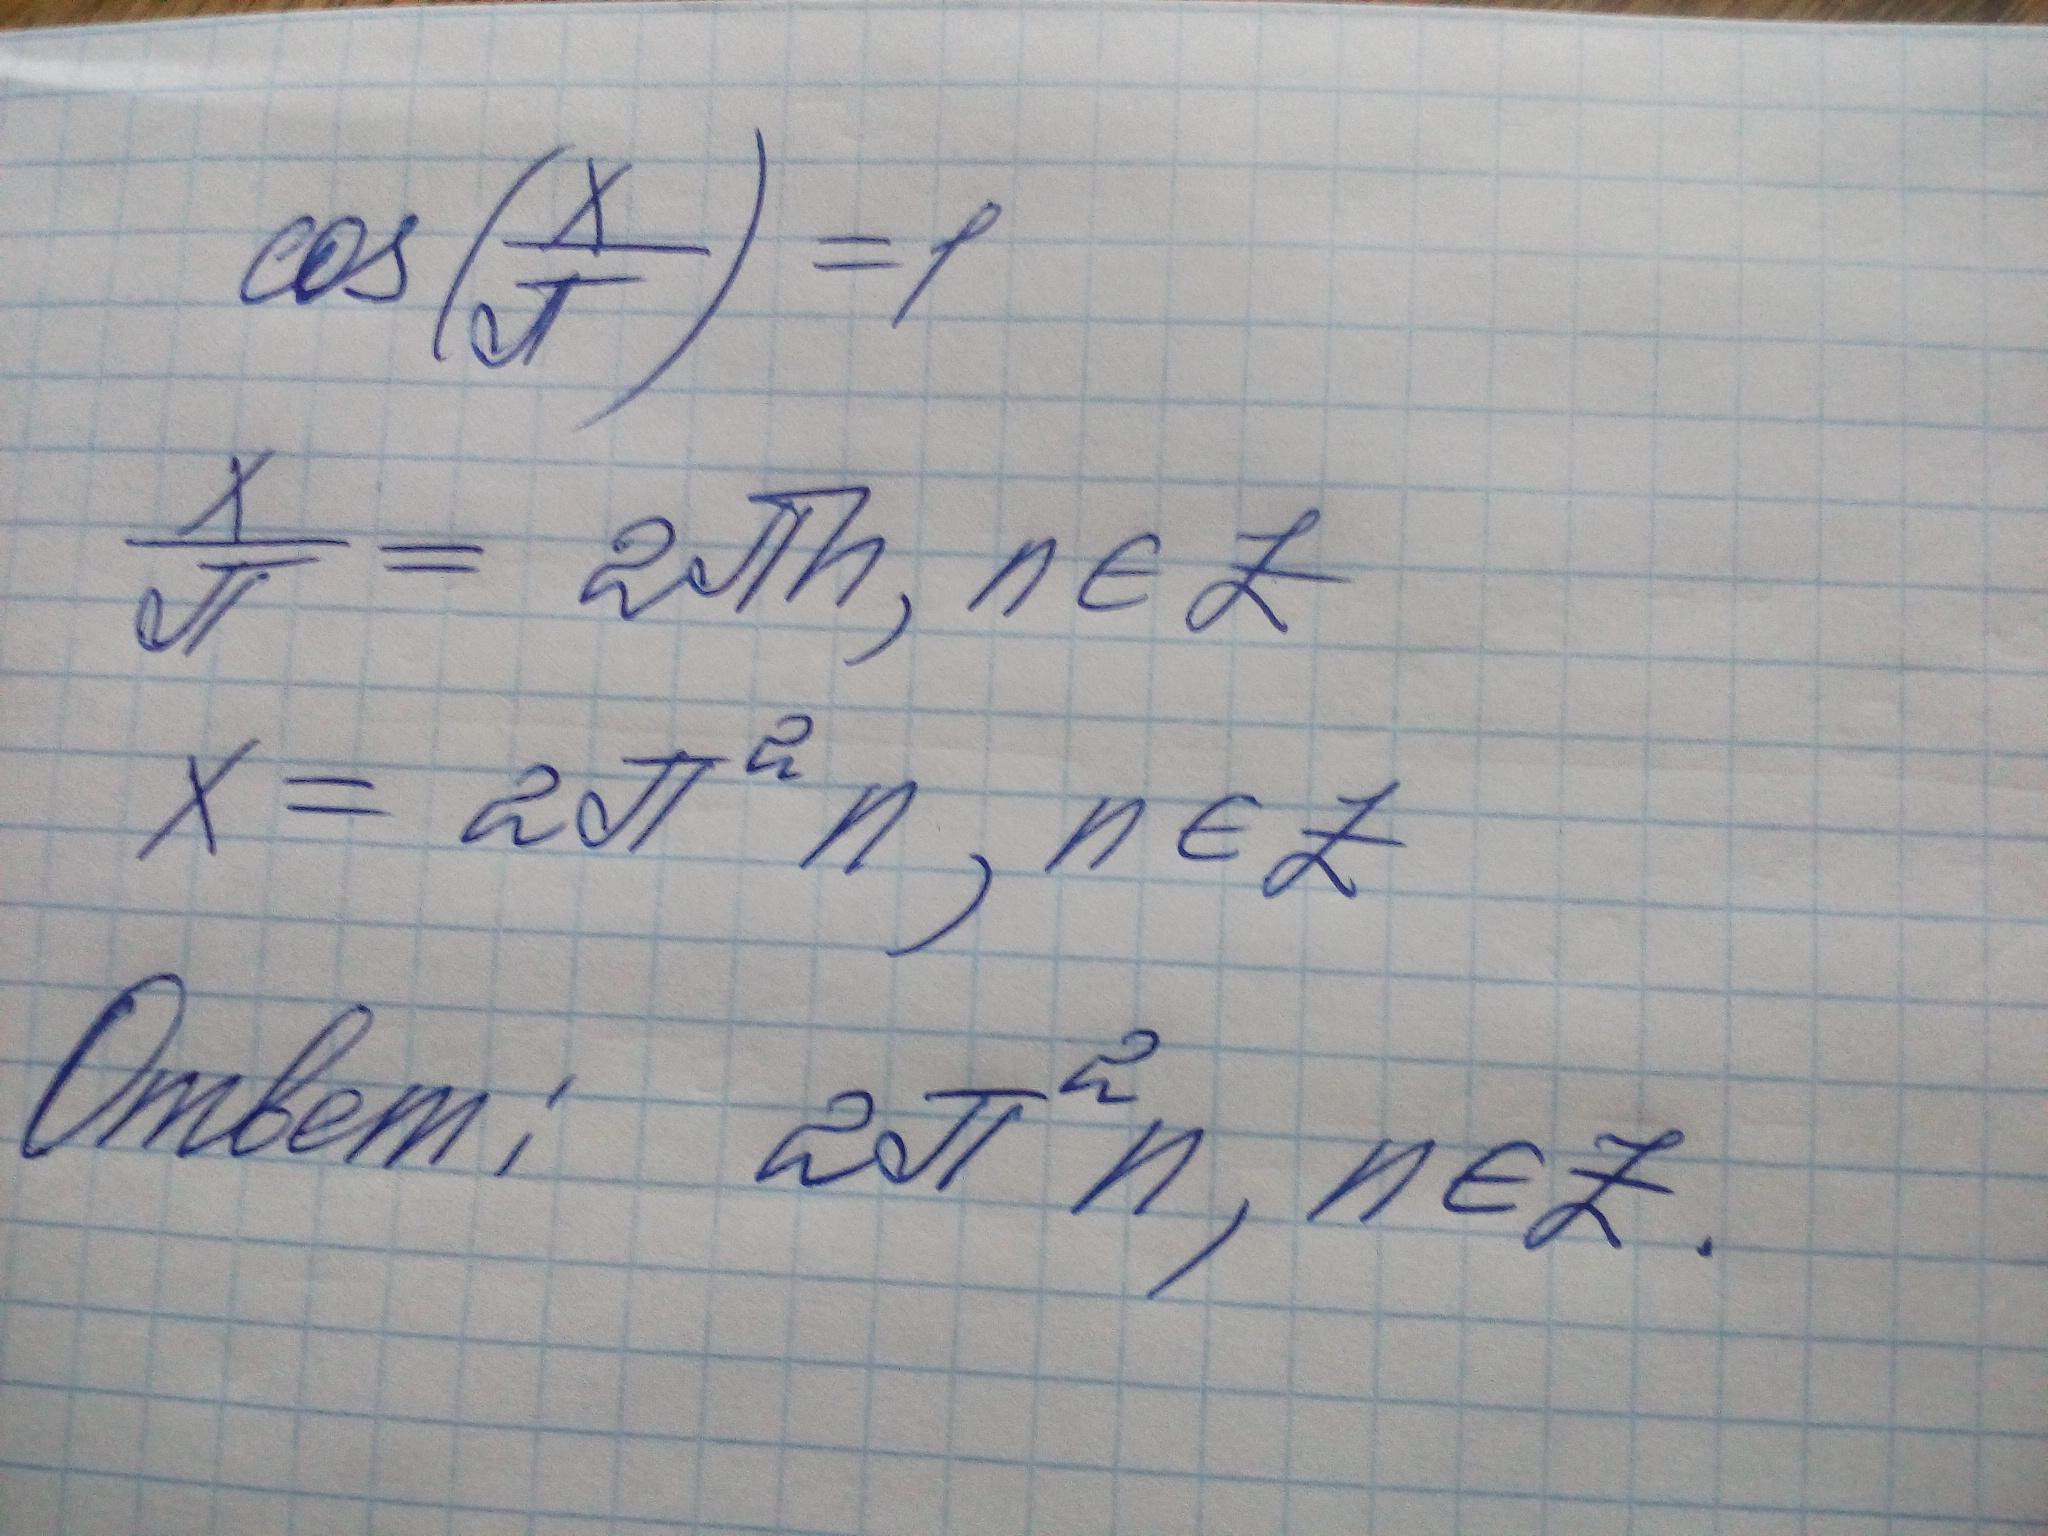 cos(x/π) = 1
x/π = 2πn, n ∈ Z
x = 2π²n, n ∈ Z
Ответ: 2π²n, n ∈ Z.